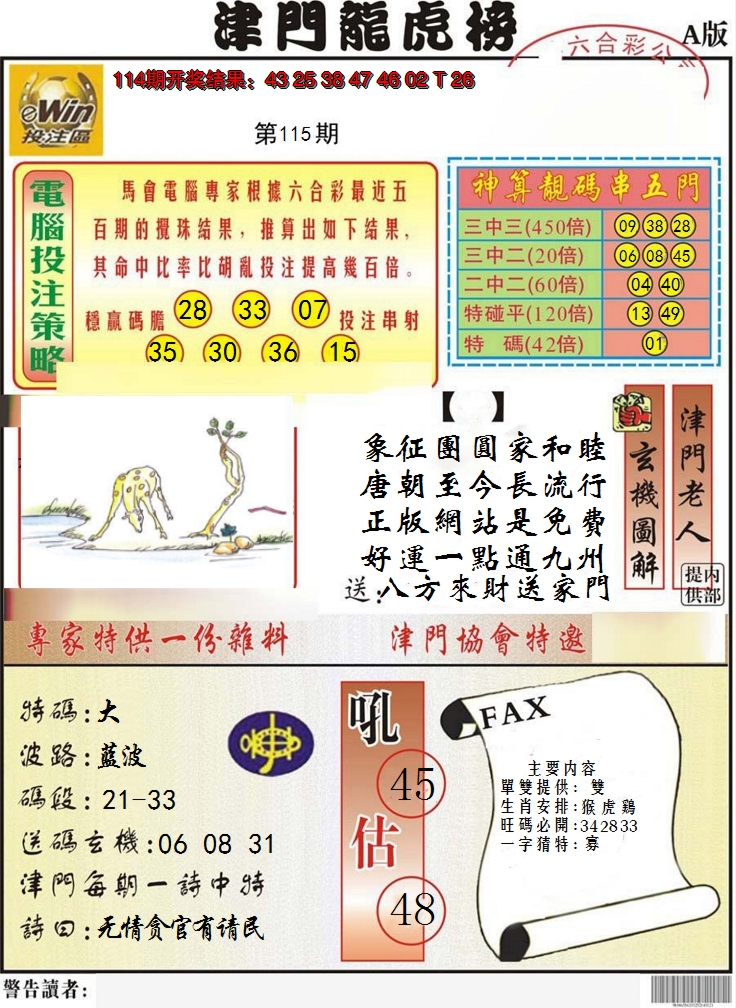 津門龍虎榜
A版
六合彩公
114期开奖结果：43 25 38 47 46 02 T 26
eWin
投注區
第115期
電腦投注策略
馬會電腦專家根據六合彩最近五
百期的攪珠结果，推算出如下结果，
其命中比率比胡亂投注提高幾百倍。
穩贏碼膽 28 33 07 投注串射
35 30 36 15
神算靚碼串五門
三中三(450倍) 09 38 28
三中二(20倍) 06 08 45
二中二(60倍) 04 40
特碰平(120倍) 13 49
特 碼(42倍) 01
【 】
象征團圓家和睦
唐朝至今長流行
正版網站是免費
好運一點通九州
送:八方來財送家門
玄機圖解
津門老人
内部提供
專家特供一份雜料
津門協會特邀
特碼:大
波路:藍波
碼段:21-33
送碼玄機:06 08 31
津門每期一詩中特
詩曰:无情贪官有请民
吼
45
估
48
FAX
主要内容
單雙提供：雙
生肖安排:猴虎鷄
旺碼必開:342833
一字猜特：寡
警告讀者：